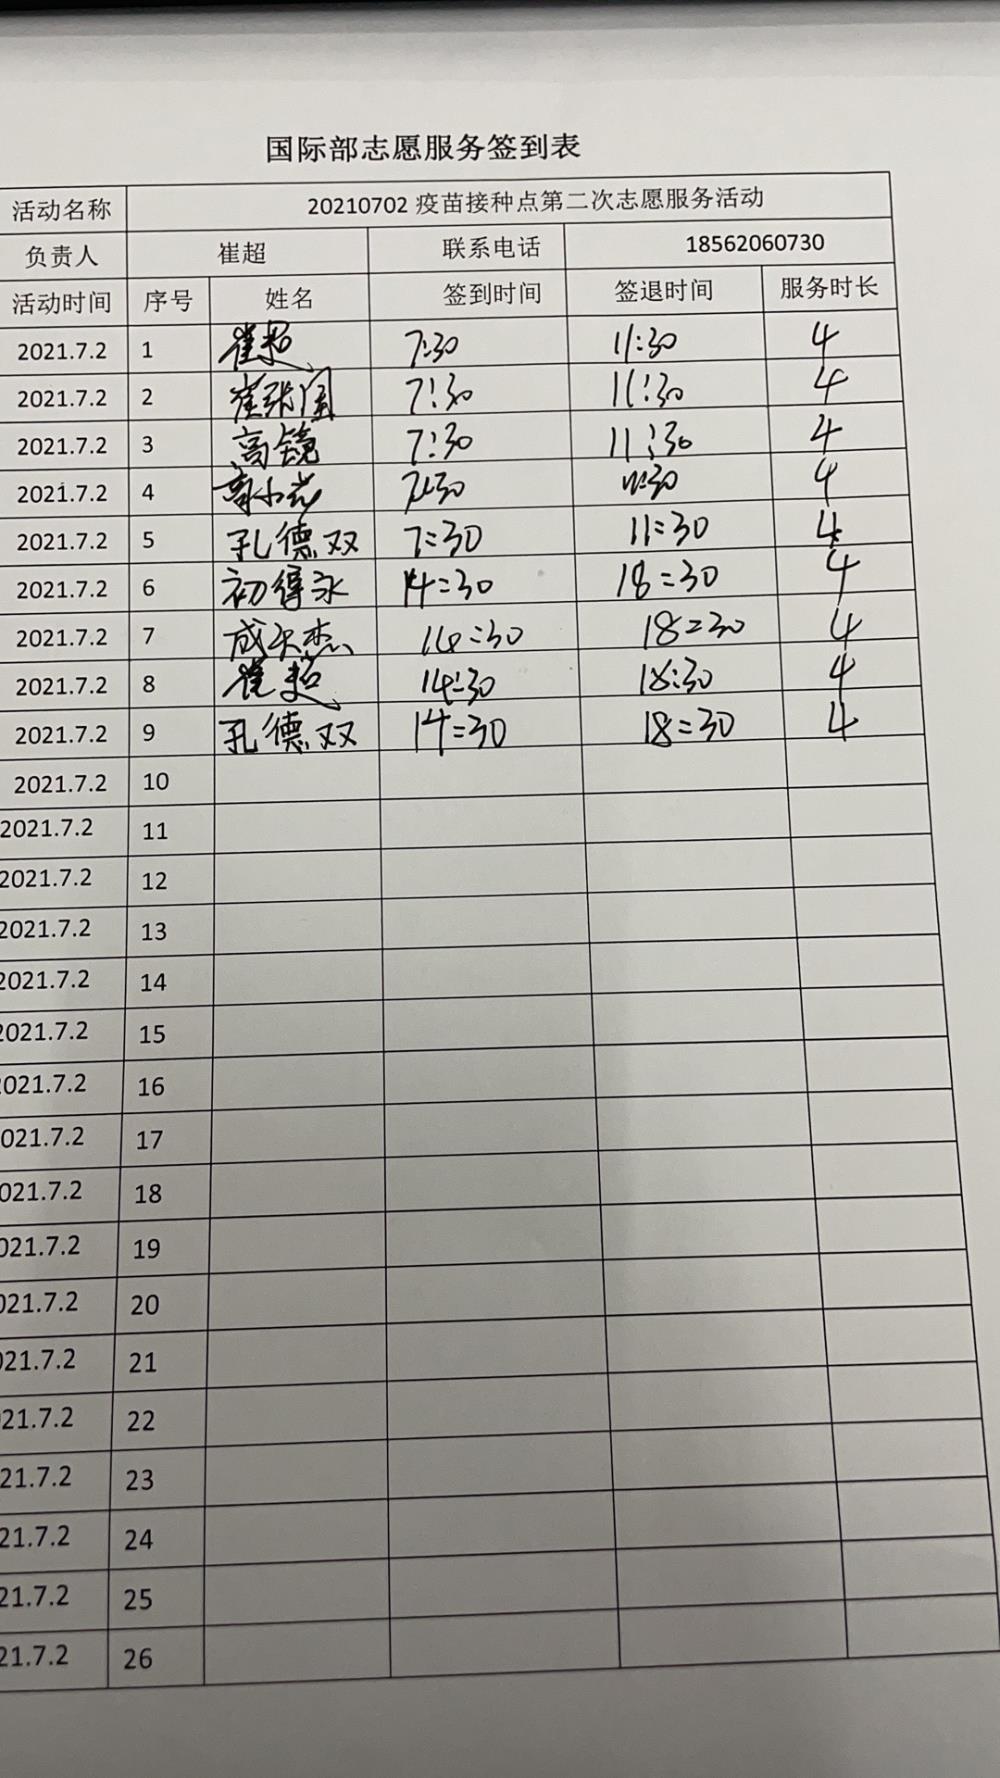 国际部志愿服务签到表
活动名称 20210702 疫苗接种点第二次志愿服务活动
负责人 崔超 联系电话 18562060730
活动时间 序号 姓名 签到时间 签退时间 服务时长
2021.7.2 1 崔超 7:30 11:30 4
2021.7.2 2 崔张国 7:30 11:30 4
2021.7.2 3 高镜 7:30 11:30 4
2021.7.2 4 7:30 11:30 4
2021.7.2 5 孔德双 7:30 11:30 4
2021.7.2 6 初得永 14:30 18:30 4
2021.7.2 7 14:30 18:30 4
2021.7.2 8 崔超 14:30 18:30 4
2021.7.2 9 孔德双 14:30 18:30 4
2021.7.2 10
2021.7.2 11
2021.7.2 12
2021.7.2 13
2021.7.2 14
2021.7.2 15
021.7.2 16
021.7.2 17
021.7.2 18
021.7.2 19
021.7.2 20
021.7.2 21
21.7.2 22
21.7.2 23
21.7.2 24
21.7.2 25
21.7.2 26